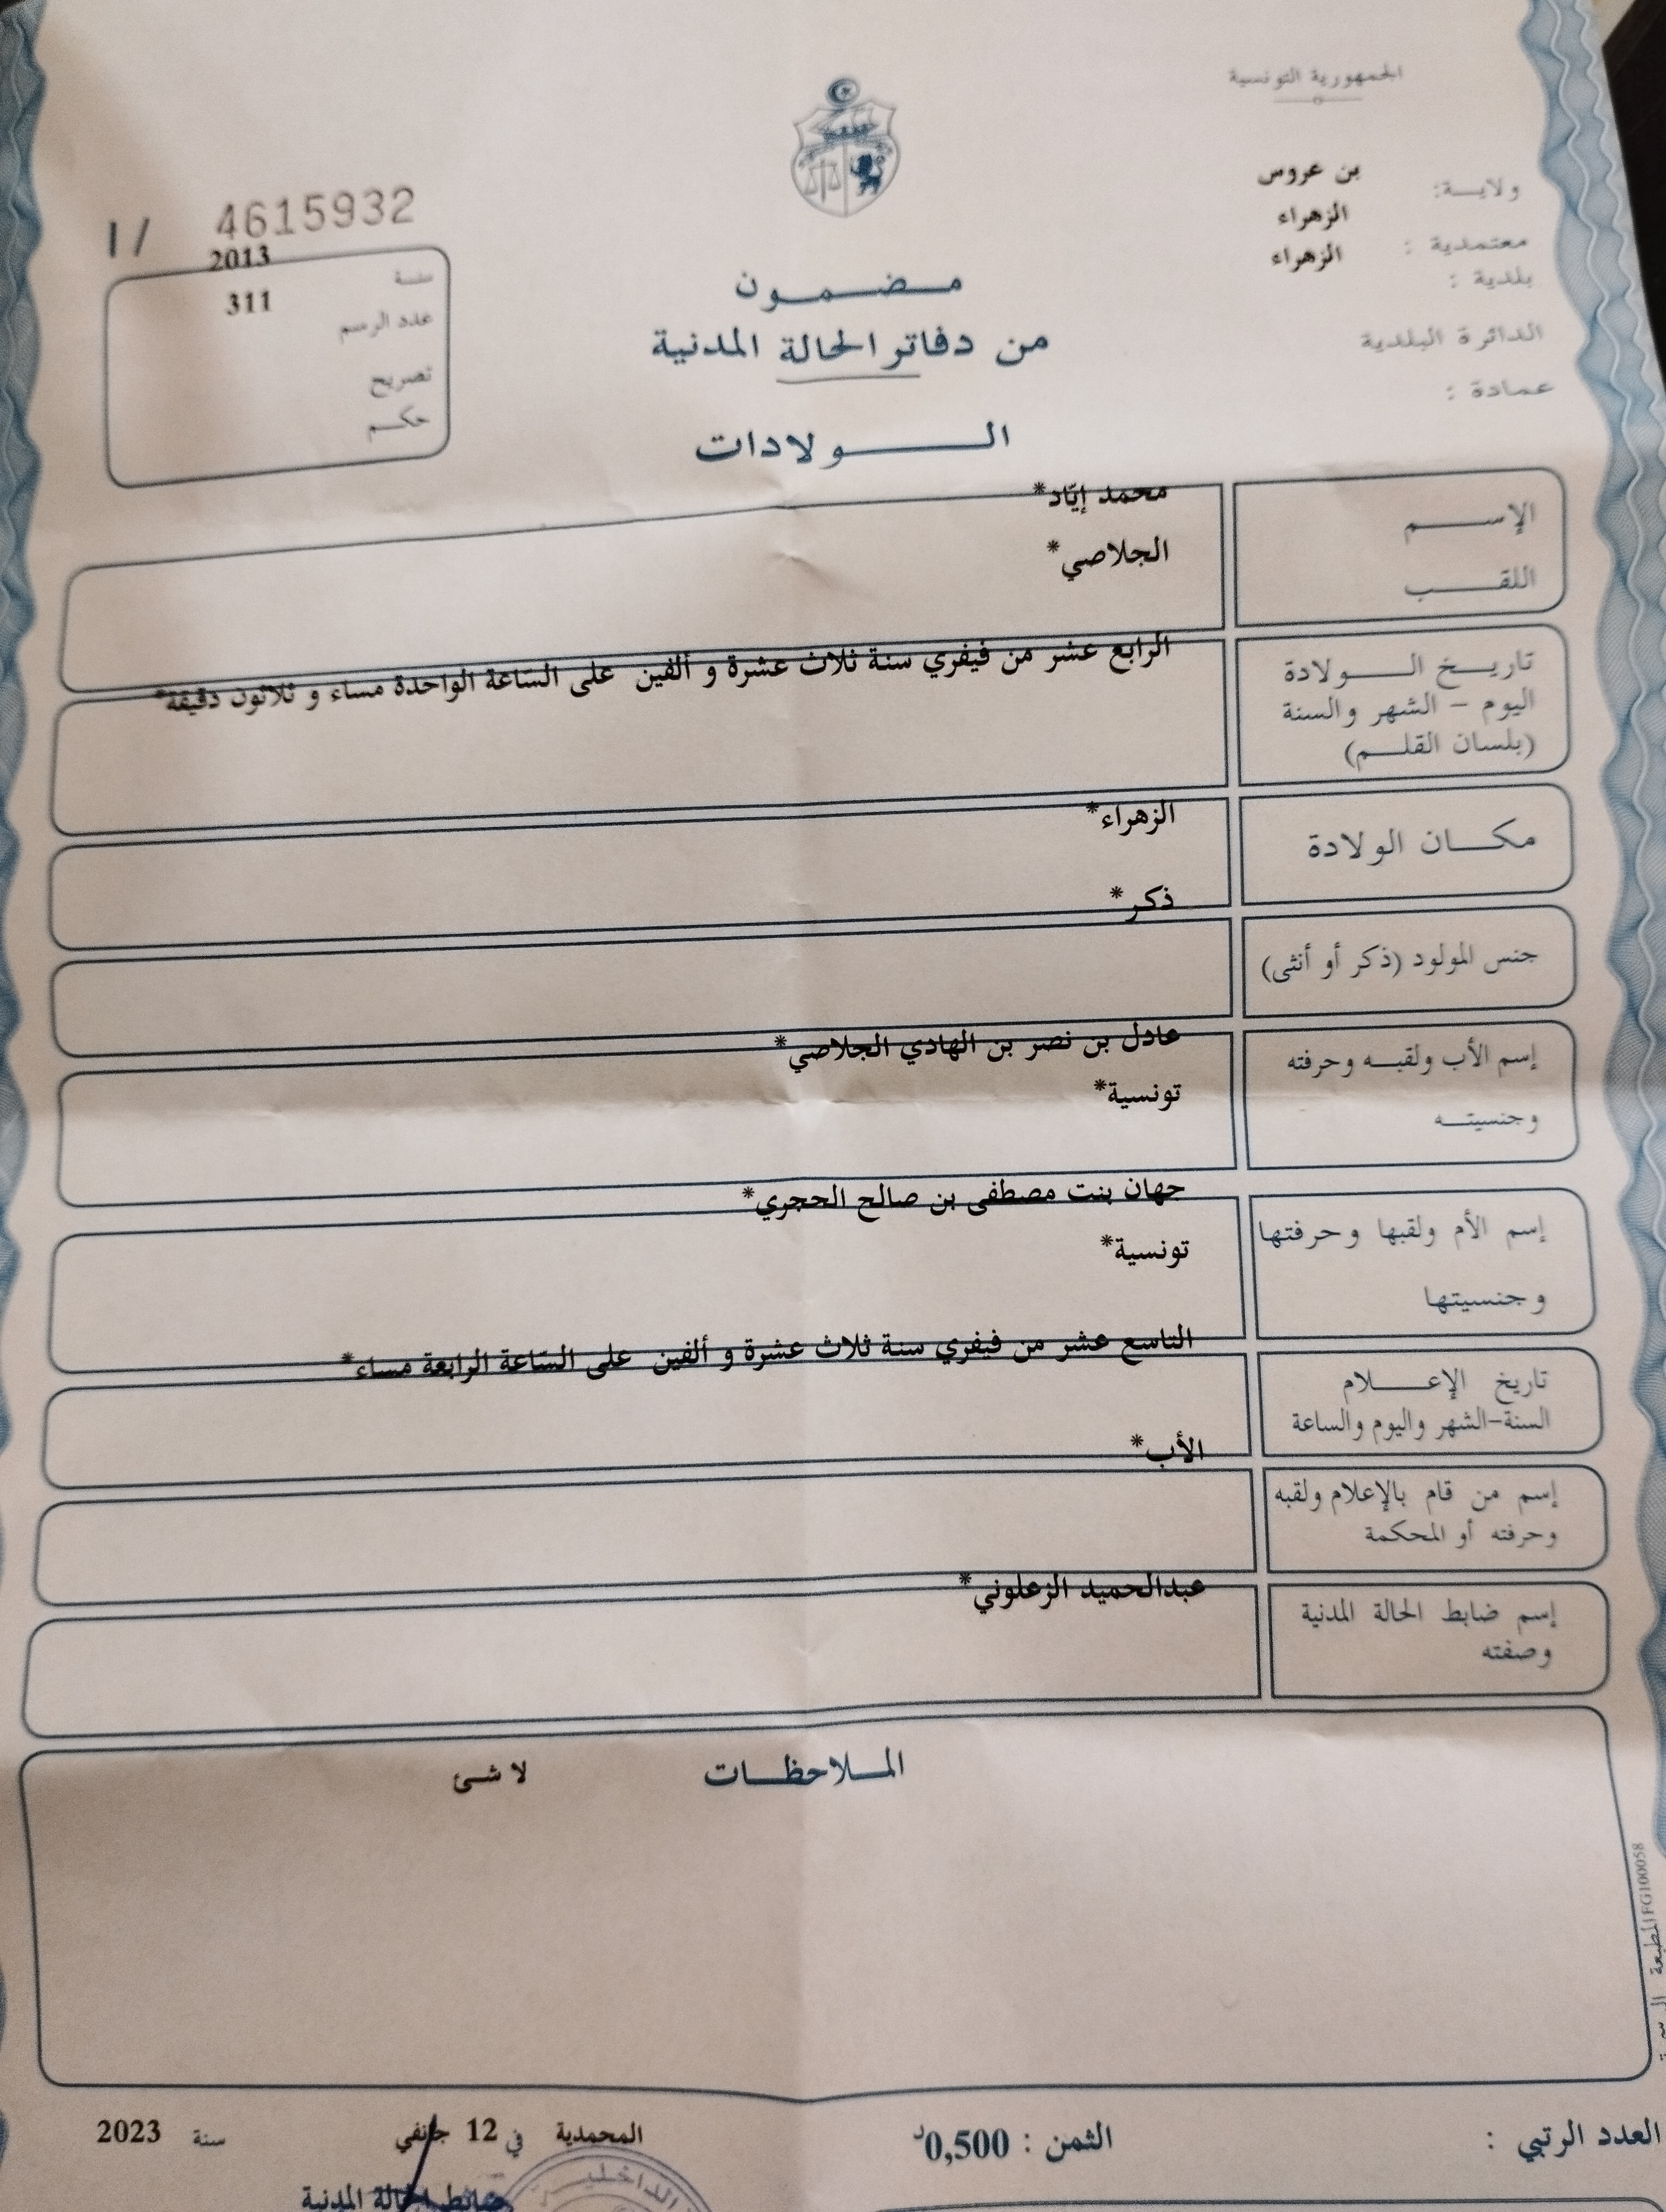 الجمهورية التونسية
ولايـــة: بن عروس
معتمدية : الزهراء
بلدية : الزهراء
الدائرة البلدية
عمادة :
I/ 4615932
سنة 2013
عدد الرسم 311
تصريح
حكم
مضمون
من دفاتر الحالة المدنية
الولادات
الإسم محمد إيّاد*
اللقب الجلاصي*
تاريخ الولادة
اليوم – الشهر والسنة
(بلسان القلم)
الرابع عشر من فيفري سنة ثلاث عشرة و ألفين على السّاعة الواحدة مساء و ثلاثون دقيقة*
مكان الولادة الزهراء*
جنس المولود (ذكر أو أنثى) ذكر*
إسم الأب ولقبه وحرفته عادل بن نصر بن الهادي الجلاصي*
وجنسيته تونسية*
إسم الأم ولقبها وحرفتها جهان بنت مصطفى بن صالح الحجري*
وجنسيتها تونسية*
تاريخ الإعلام
السنة-الشهر واليوم والساعة
التاسع عشر من فيفري سنة ثلاث عشرة و ألفين على السّاعة الرابعة مساء*
إسم من قام بالإعلام ولقبه
وحرفته أو المحكمة
الأب*
إسم ضابط الحالة المدنية
وصفته
عبدالحميد الزعلوني*
الملاحظات لا شئ
المطبعة FG100058
العدد الرتبي :
الثمن : 0,500د
المحمدية في 12 جانفي سنة 2023
ضابط الحالة المدنية